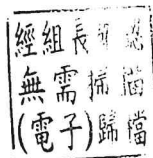 經組長確認
無需掃描
(電子)歸檔